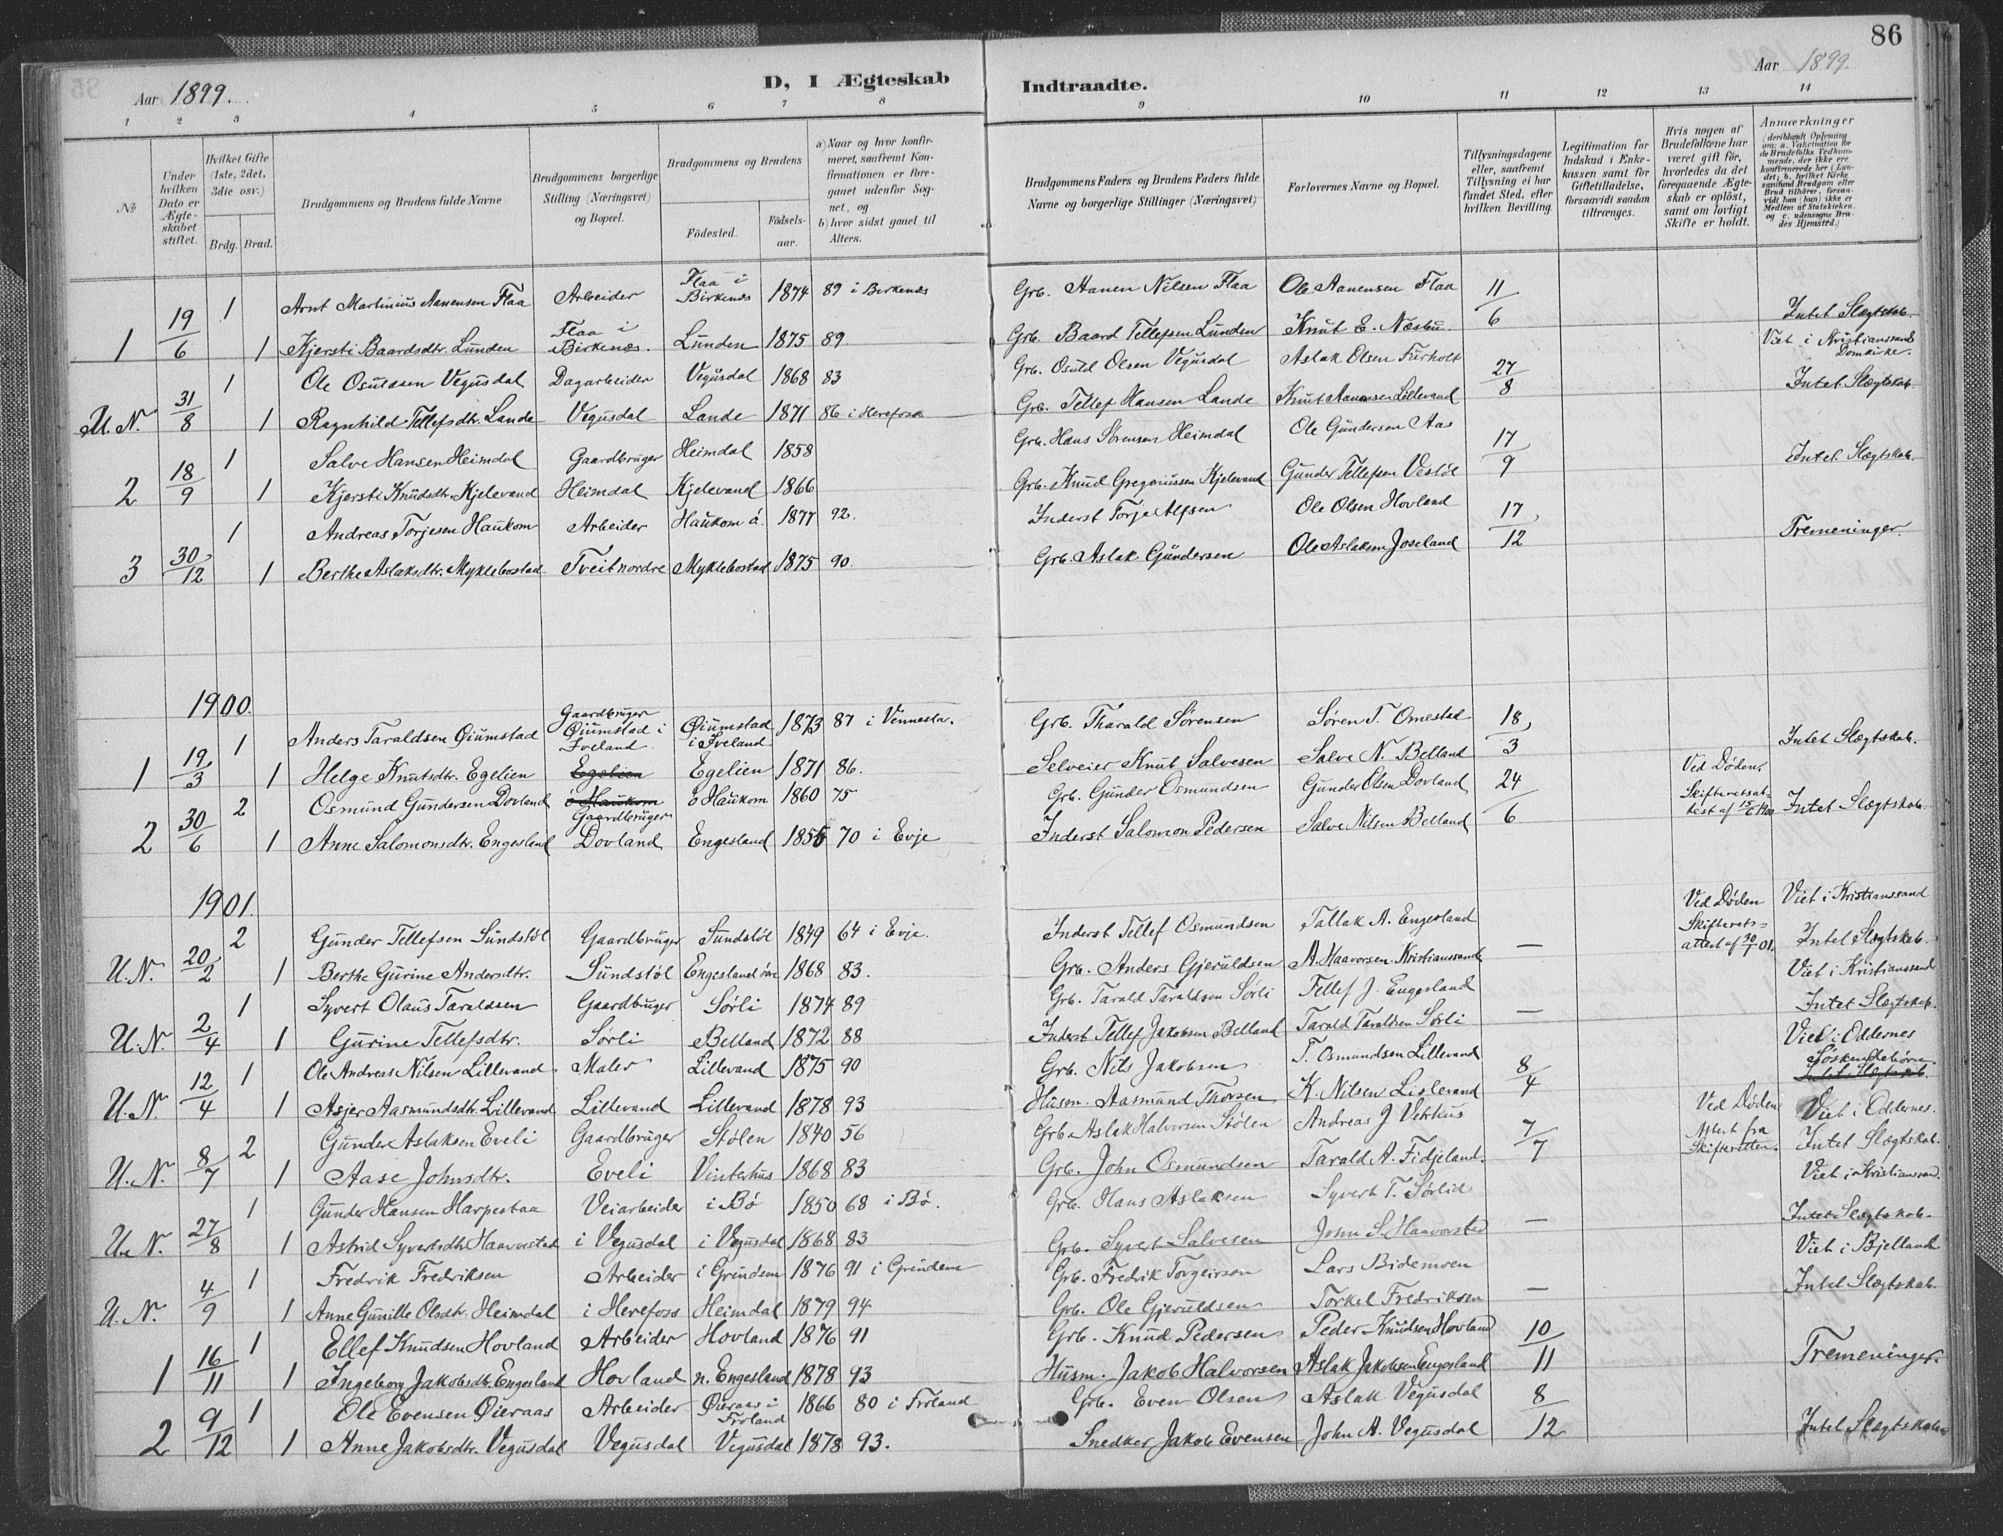 86
Aar 1899.
D, I Ægteskab Indtraadte.
Aar 1899
1 2 3 4 5 6 7 8 9 10 11 12 13 14
No
Under hvilken Dato er Ægteskabet stiftet.
Hvilket Gifte (1ste, 2det, 3die osv.)
Brdg. Brud.
Brudgommens og Brudens fulde Navne
Brudgommens borgerlige Stilling (Næringsvei) og Bopæl.
Brudgommens og Brudens
Fødested.
Fødselsaar.
a) Naar og hvor konfirmeret, saafremt Konfirmationen er foregaaet udenfor Sognet, og b) hvor sidst gaaet til Alters.
Brudgommens Faders og Brudens Faders fulde Navne og borgerlige Stillinger (Næringsvei)
Forlovernes Navne og Bopæl.
Tillysningsdagene eller, saafremt Tillysning ei har fundet Sted, efter hvilken Bevilling.
Legitimation for Indskud i Enkekassen samt for Giftetilladelse, forsaavidt saadan tiltrænges.
Hvis nogen af Brudefolkene har været gift før, hvorledes da det foregaaende Ægteskab er opløst, samt om lovligt Skifte er holdt.
Anmærkninger (deriblandt Oplysning om: a. Vakcination for de Brudefolks Vedkommende, der ikke ere konfirmerede her i Landet; b. hvilket Kirkesamfund Brudgom eller Brud tilhører, forsaavidt han (hun) ikke er Medlem af Statskirken, og c. udensogns Brudes Hjemsted.)
1 19/6 1 Arnt Martinius Aanensen Flaa Arbeider Flaa i Birkenæs 1874 89 i Birkenæs Grb. Aanen Nilsen Flaa Ole Aanensen Flaa 11/6 Intet Slægtskab.
1 Kjersti Baardsdtr. Lunden Flaa i Birkenæs. Lunden 1875 89 Grb. Baard Tellefsen Lunden Knut E. Næsbu Viet i Kristianssands Domkirke.
U.N. 31/8 1 Ole Osuldsen Vegusdal Dagarbeider Vegusdal 1868 83 Grb. Osuld Olsen Vegusdal Aslak Olsen Furholt 27/8 Intet Slægtskab.
1 Ragnhild Tellefsdtr. Lande Vegusdal Lande 1871 86 i Herefoss Grb. Tellef Hansen Lande Knut Aanensen Lillevand
2 18/9 1 Salve Hansen Heimdal Gaardbruger Heimdal 1858 Grb. Hans Sørensen Heimdal Ole Gundersen Aas 17/9 Intet Slægtskab.
1 Kjersti Knudsdtr. Kjelevand Heimdal Kjelevand 1866 Grb. Knud Gregoriussen Kjelevand Gunder Tellefsen Vestøl
3 30/12 1 Andreas Torjesen Haukom Arbeider Haukom ø. 1877 92. Inderst Torje Alfsen Ole Olsen Hovland 17/12 Tremeninger.
1 Berthe Aslaksdtr. Myklebostad Tveit nordre Myklebostad 1875 90. Grb. Aslak Gundersen Ole Aslaksen Joseland
1900.
1 19/3 1 Anders Taraldsen Øiumstad Gaardbruger Øiumstad i Iveland Øiumstad i Iveland 1873 87 i Vennesla. Grb. Tharald Sørensen Søren T. Omestad 18/3 Intet Slægtskab.
1 Helge Knutsdtr. Egelien Egelien Egelien 1871 86. Selveier Knut Salvesen Salve N. Belland
2 30/6 2 Osmund Gundersen Dovland ø Haukom Gaardbruger ø Haukom 1860 75 Grb. Gunder Osmundsen Gunder Olsen Dovland 24/6 Ved Døden, Skifteretsattest af 15/6 1900 Intet Slægtskab.
1 Anne Salomonsdtr. Engesland Dovland Engesland 1855 70 i Evje Inderst Salomon Pedersen Salve Nilsen Belland
1901.
U.N. 20/2 2 Gunder Tellefsen Sundstøl Gaardbruger Sundstøl 1849 64 i Evje. Inderst Tellef Osmundsen Tallak A. Engesland — Ved Døden Skifteretsattest af 01. Viet i Kristianssand Intet Slægtskab.
1 Berthe Gurine Andersdtr. Sundstøl Engesland øvre 1868 83. Grb. Anders Gjeruldsen A. Haavorsen Kristianssand
U.N. 2/4 1 Syvert Olaus Taraldsen Gaardbruger Sørli 1874 89 Grb. Tarald Taraldsen Sørli Tellef J. Engesland — Viet i Kristianssand Intet Slægtskab.
1 Gurine Tellefsdtr. Sørli Belland 1872 88 Inderst Tellef Jakobsen Belland Tarald Taraldsen Sørli
U.N. 12/4 1 Ole Andreas Nilsen Lillevand Maler Lillevand 1875 90 Grb. Nils Jakobsen T. Osmundsen Lillevand 8/4 Viet i Oddernes Søskendebørn Intet Slægtskab.
1 Asjer Aasmundsdtr. Lillevand Lillevand Lillevand 1878 93 Husm. Aasmund Thorsen K. Nilsen Lislevand
U.N. 8/7 2 Gunder Aslaksen Eveli Gaardbruger Stølen 1840 56 Grb. Aslak Halvorsen Stølen Andreas J. Vehus 7/7 Ved Døden Attest fra Skifteretten. Viet i Oddernes. Intet Slægtskab.
1 Aase Johnsdtr. Eveli Vinterhus 1868 83 Grb. John Osmundsen Tarald A. Fidjeland.
U.N. 27/8 1 Gunder Hansen Harpestaa Veiarbeider i Bø 1850 68 i Bø. Grb. Hans Aslaksen Syvert T. Sørlid — Viet i Kristianssand. Intet Slægtskab.
1 Astrid Syvertsdtr. Haavorstad i Vegusdal i Vegusdal 1868 83 Grb. Syvert Salvesen John S. Haavorstad
U.N. 4/9 1 Fredrik Fredriksen Arbeider i Grindem 1876 91 i Grindem Grb. Fredrik Torgeirson Lars Bidemoen — Viet i Bjelland Intet Slægtskab.
1 Anne Gunille Olsdtr. Heimdal i Herefoss Heimdal 1879 94 Grb. Ole Gjeruldsen Torkel Fredriksen
1 16/11 1 Ellef Knudsen Hovland Arbeider Hovland 1876 91 Grb. Knud Pedersen Peder Knudsen Hovland 10/11 Tremeninger.
1 Ingeborg Jakobsdtr. Engesland Hovland n. Engesland 1878 93 Husm. Jakob Halvorsen Aslak Jakobsen Engesland
2 9/12 1 Ole Evensen Øieraas Arbeider Øieraas i Froland 1866 80 i Froland Grb. Even Olsen Aslak Vegusdal 8/12 Intet Slægtskab.
1 Anne Jakobsdtr. Vegusdal Vegusdal Vegusdal 1878 93. Snedker Jakob Evensen John A. Vegusdal